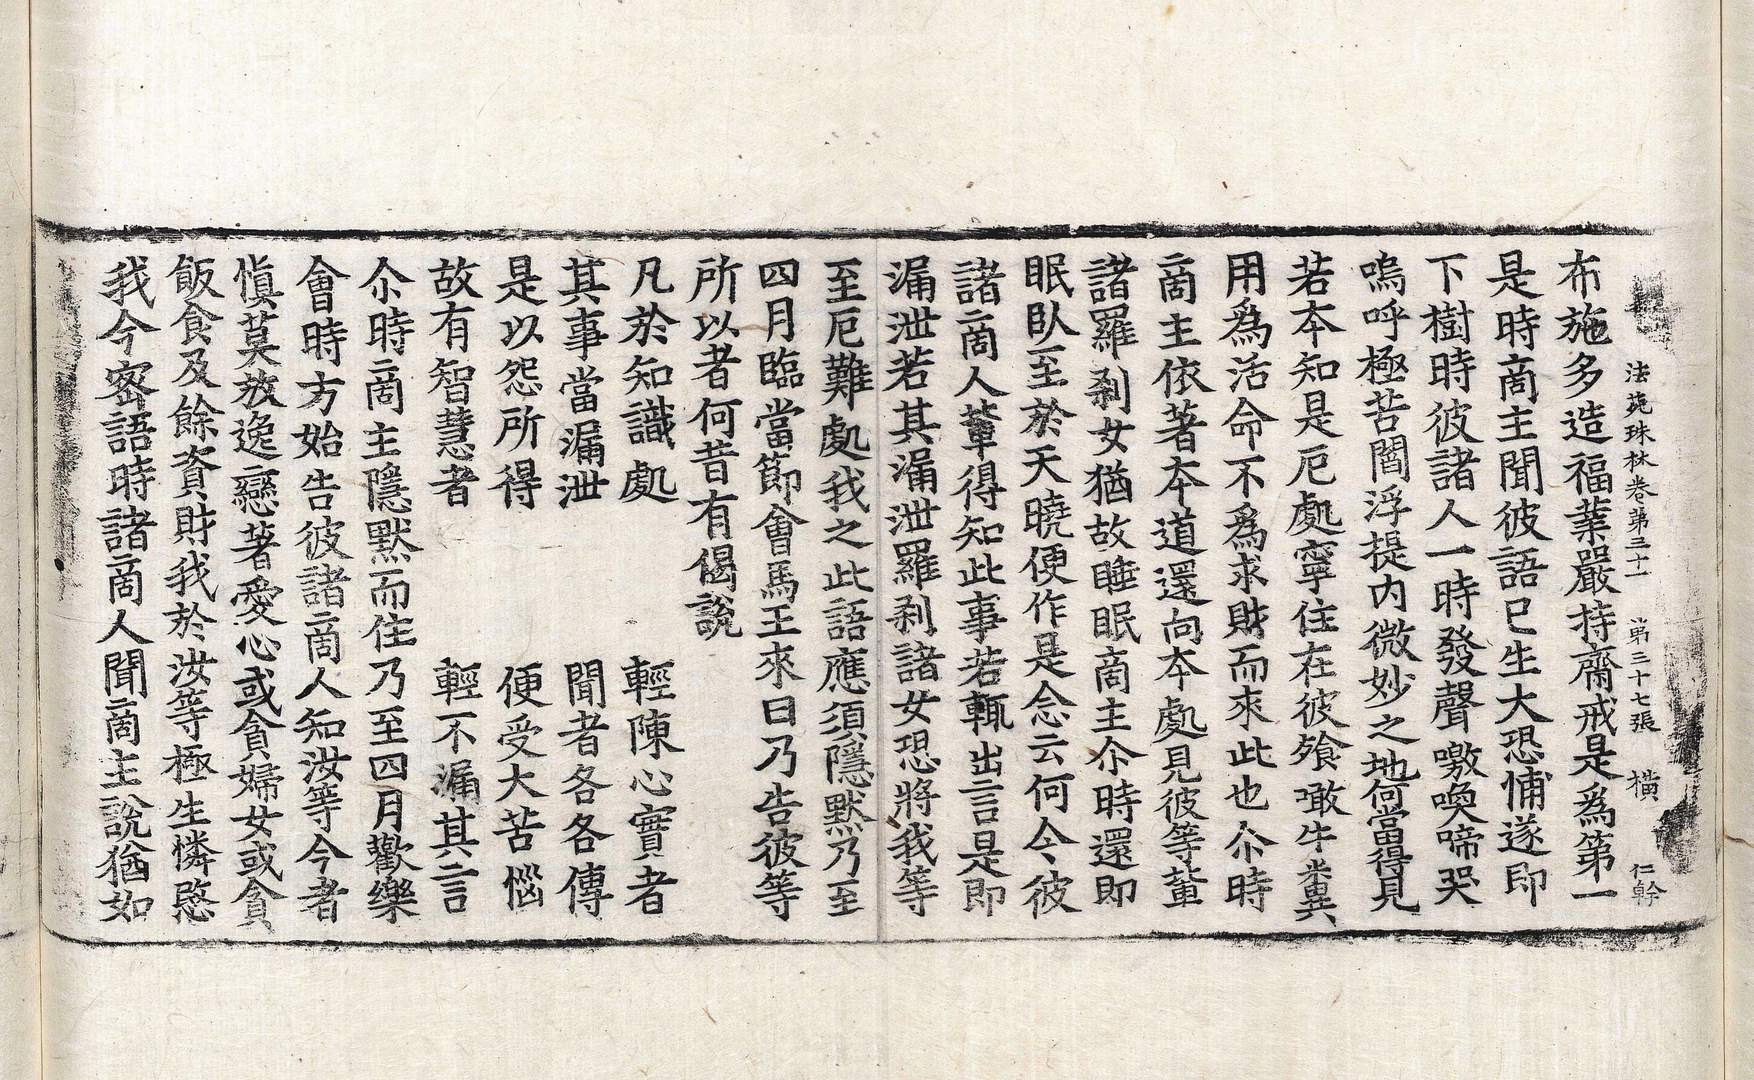 法苑珠林卷第三十一 第三十七張 橫 仁幹
布施多造福業嚴持齋戒是爲第一
是時啇主聞彼語已生大恐怖遂即
下樹時彼諸人一時發聲噭喚啼哭
嗚呼極苦閻浮提内微妙之地何當得見
若本知是厄處寧住在彼飡噉牛糞
用爲活命不爲求財而來此也尒時
啇主依著本道還向本處見彼等輩
諸羅剎女猶故睡眠啇主尒時還即
眠臥至於天曉便作是念云何今彼
諸啇人輩得知此事若輒出言是即
漏泄若其漏泄羅剎諸女恐將我等
至厄難處我之此語應須隱默乃至
四月臨當節會馬王來日乃告彼等
所以者何昔有偈說
凡於知識處 輕陳心實者
其事當漏泄 聞者各各傳
是以怨所得 便受大苦惱
故有智慧者 輕不漏其言
尒時啇主隱默而住乃至四月歡樂
會時方始告彼諸啇人知汝等今者
慎莫放逸戀著愛心或貪婦女或貪
飯食及餘資財我於汝等極生憐愍
我今密語時諸啇人聞啇主說猶如